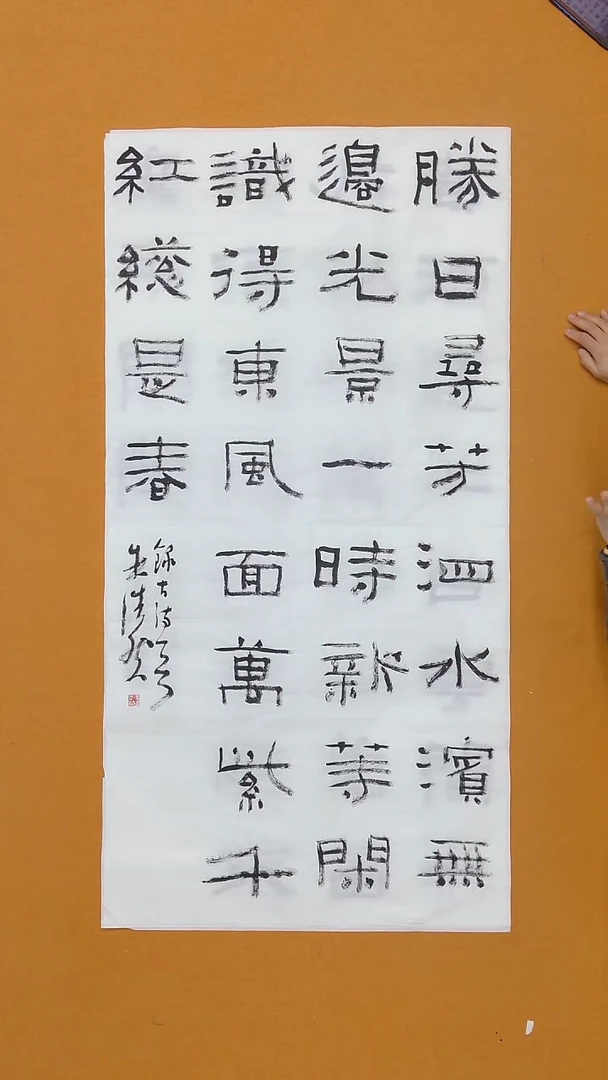 勝日尋芳泗水濱無
邊光景一時新等閑
識得東風面萬紫千
紅總是春
錄古詩一首